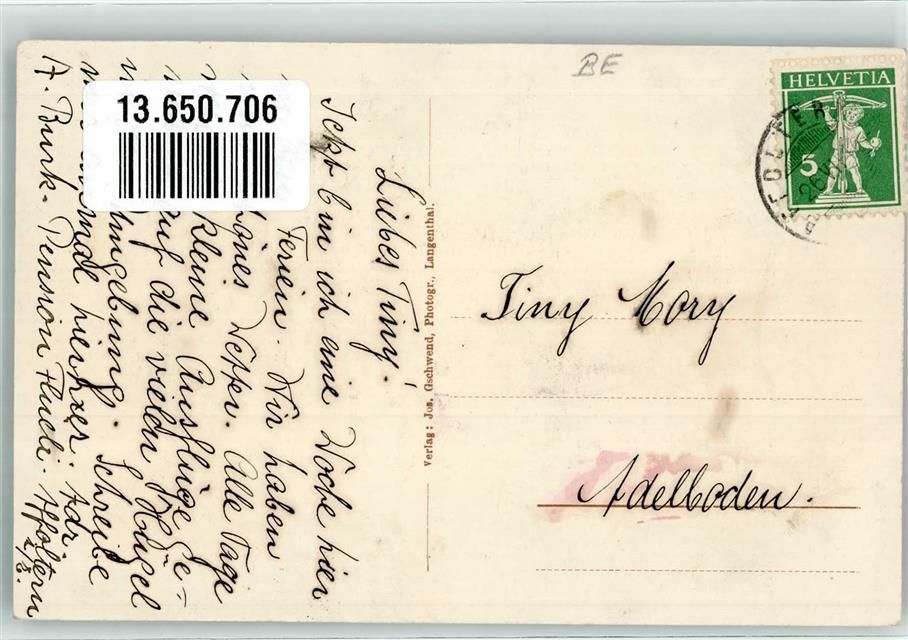 13.650.706
BE
HELVETIA
5
Liebes Tiny!
Jetzt bin ich eine Woche hier
Ferien. Wir haben
Wetter. Alle Tage
kleine Ausflüge
auf die vielen Hügel
Umgebung. Schreibe
einmal hierher. Adr.
A. Burk. Pension Flueli. Affoltern
i/E.
Verlag: Jos. Gschwend, Photogr., Langenthal.
Tiny Mory
Adelboden.